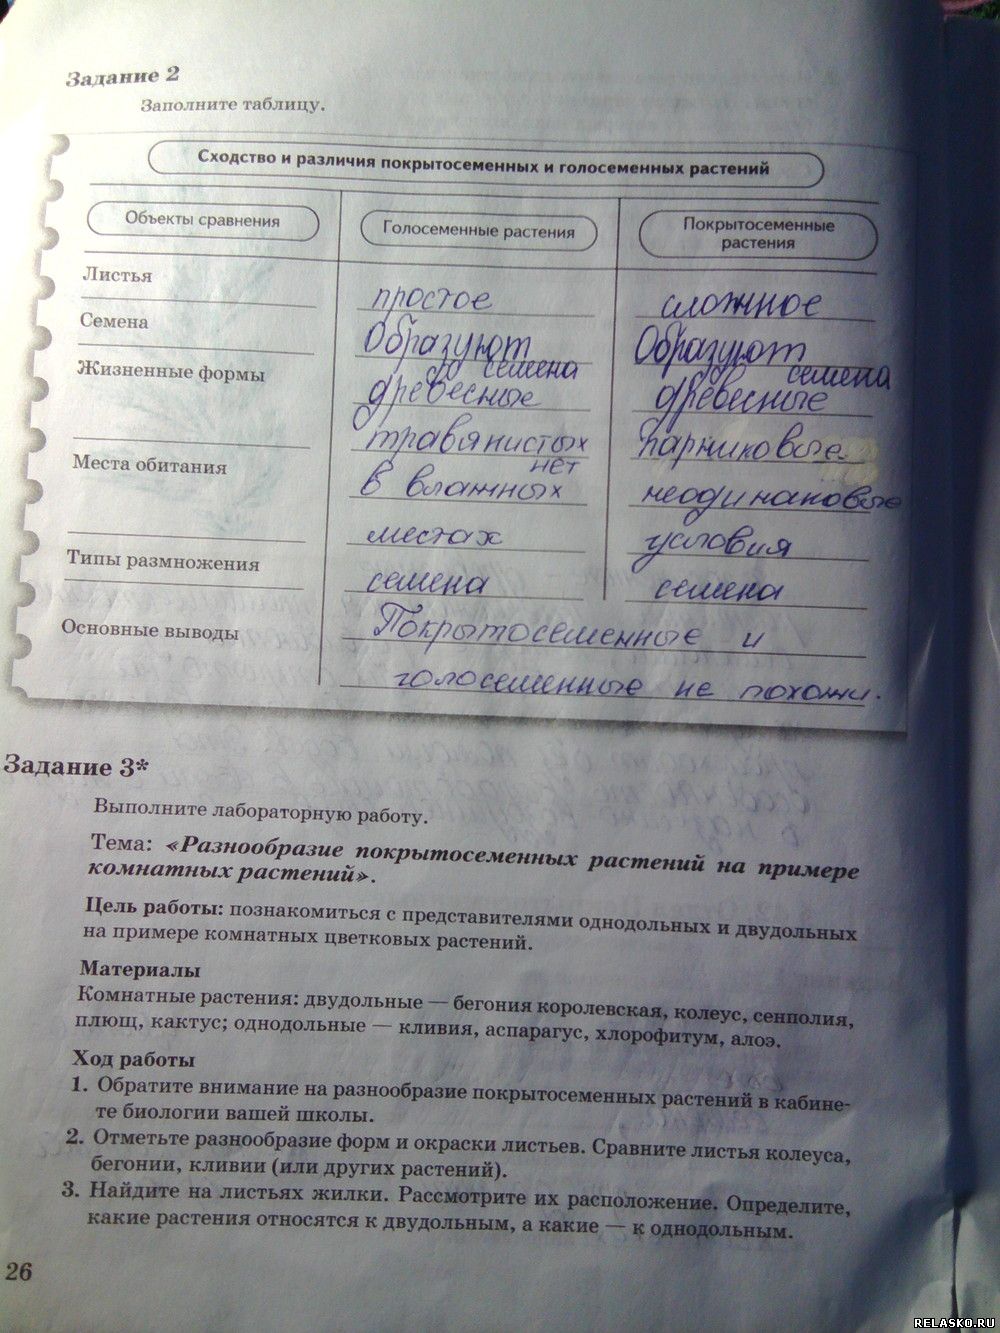 Задание 2
Заполните таблицу.
Сходство и различия покрытосеменных и голосеменных растений
Объекты сравнения
Голосеменные растения
Покрытосеменные
растения
Листья
простое
сложное
Семена
Образуют
семена
Образуют
семена
Жизненные формы
древесные
травянистых
нет
древесные
парниковые
Места обитания
в влажных
местах
неодинаковые
условия
Типы размножения
семена
семена
Основные выводы
Покрытосеменные и
голосеменные не похожи.
Задание 3*
Выполните лабораторную работу.
Тема: «Разнообразие покрытосеменных растений на примере
комнатных растений».
Цель работы: познакомиться с представителями однодольных и двудольных
на примере комнатных цветковых растений.
Материалы
Комнатные растения: двудольные — бегония королевская, колеус, сенполия,
плющ, кактус; однодольные — кливия, аспарагус, хлорофитум, алоэ.
Ход работы
1. Обратите внимание на разнообразие покрытосеменных растений в кабине-
те биологии вашей школы.
2. Отметьте разнообразие форм и окраски листьев. Сравните листья колеуса,
бегонии, кливии (или других растений).
3. Найдите на листьях жилки. Рассмотрите их расположение. Определите,
какие растения относятся к двудольным, а какие — к однодольным.
26
RELASKO.RU